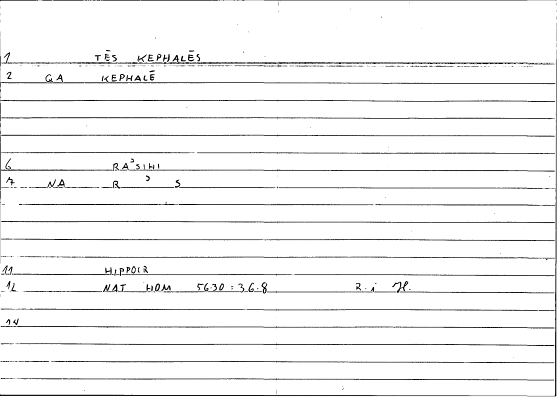 1 TĒS KEPHALĒS
2 GA KEPHALĒ
6 RAʾSIHI
7 NA R ʾ S
11 HIPPOCR
12 NAT HOM 5630:36.8 R. i H.
14